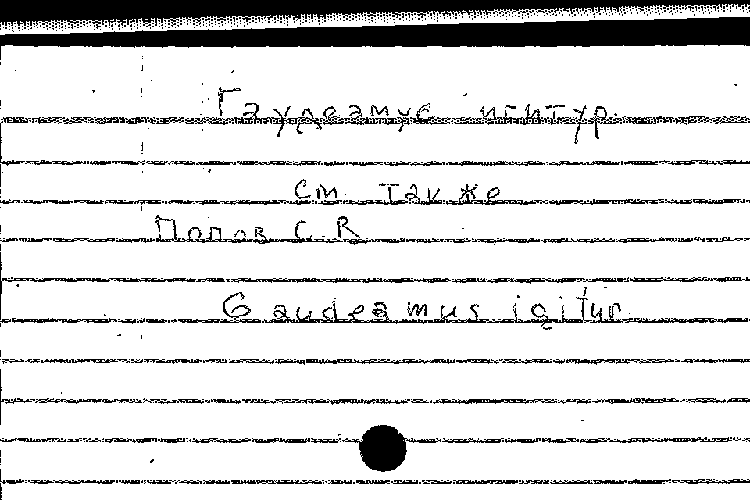 Гаудеамус игитур.
См. также
Попов С. В.
Gaudeamus igitur